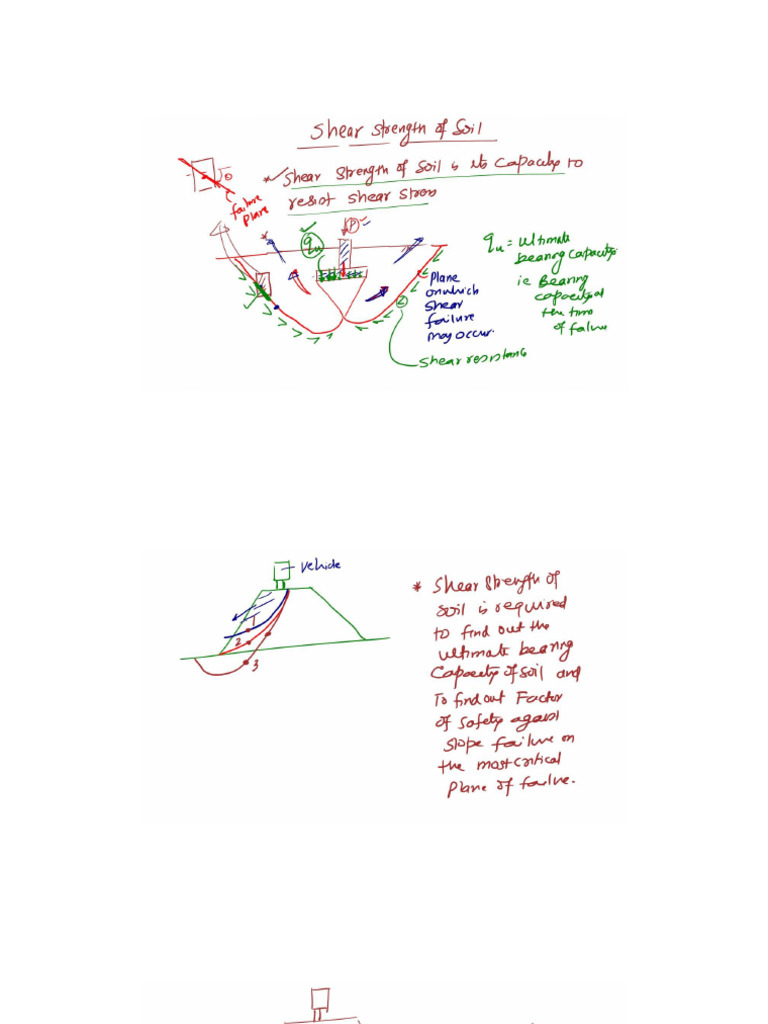 Shear Strength of Soil
* Shear Strength of Soil is its Capacity to
resist shear stress
failure
plane
qu
P
qu = ultimate
bearing capacity
ie Bearing
capacity at
the time
of failure
Plane
on which
shear
failure
may occur.
shear resistance
vehicle
1
2
3
* Shear Strength of
soil is required
to find out the
ultimate bearing
Capacity of soil and
To find out Factor
of safety against
slope failure on
the most critical
plane of failure.